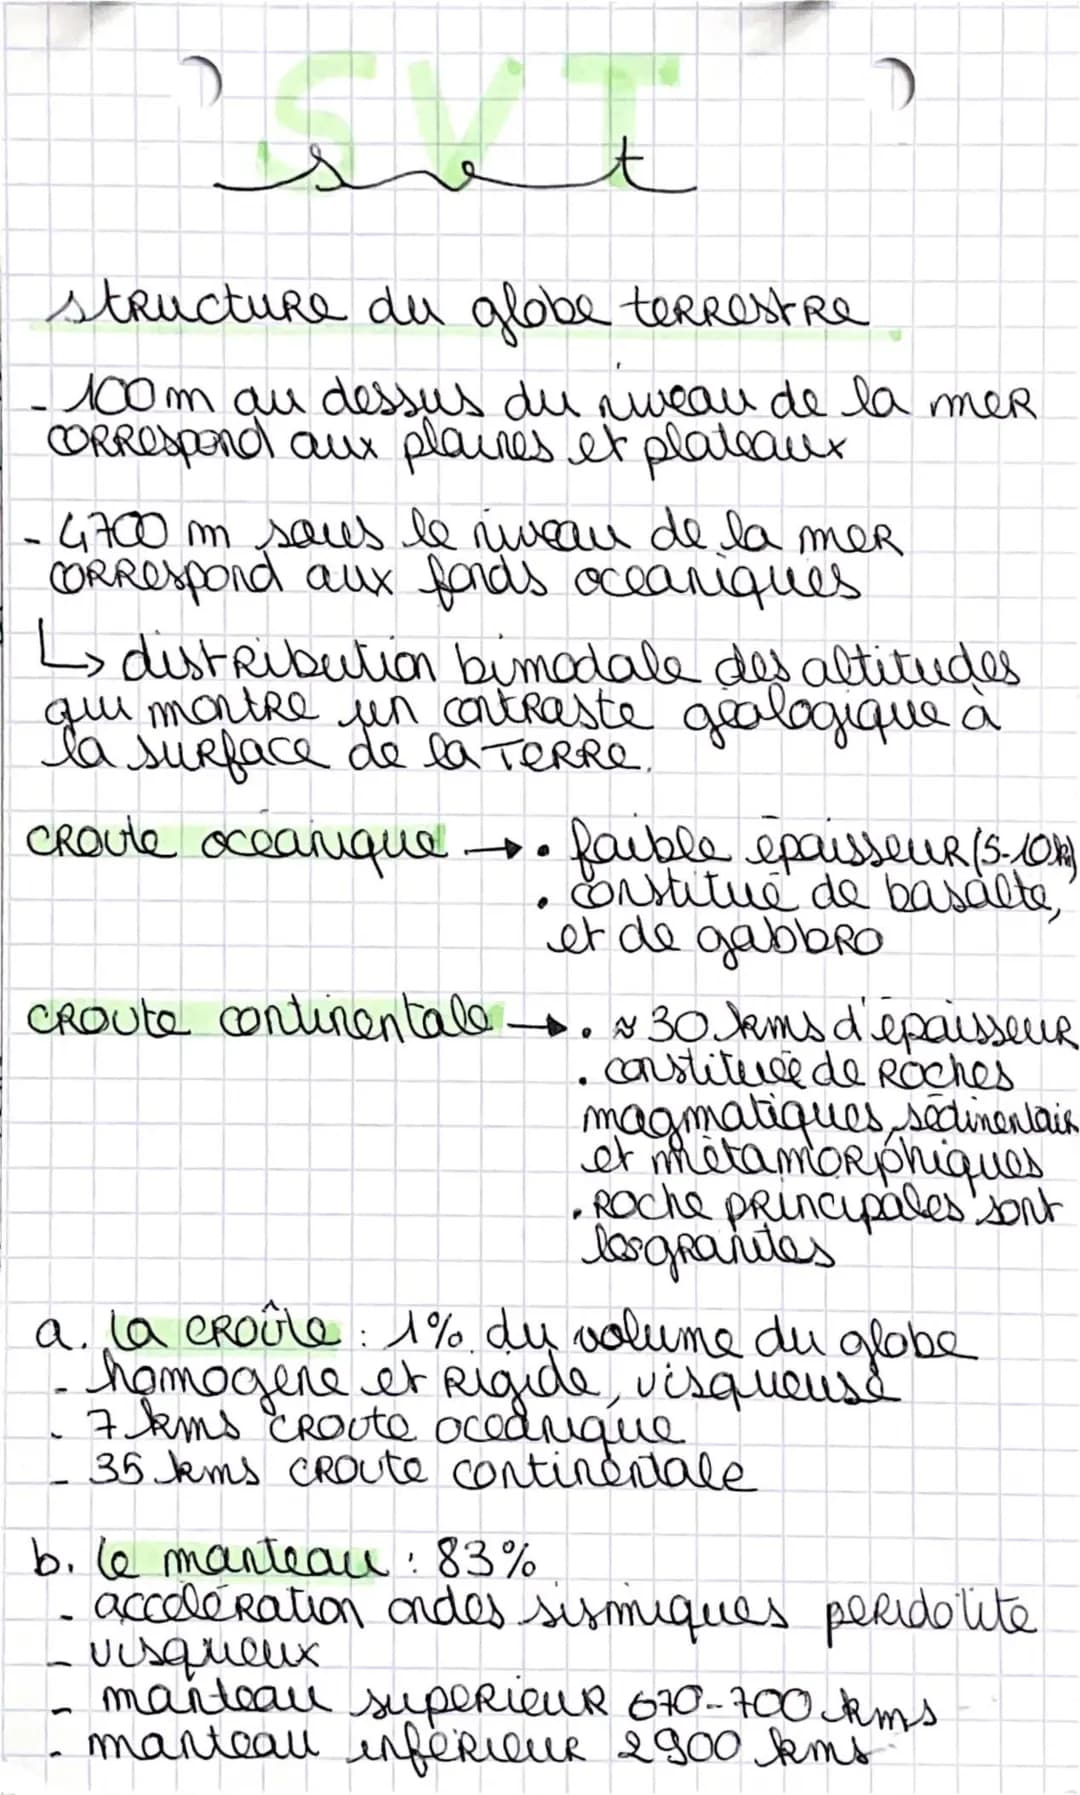 SVT
svt
structure du globe terrestre
- 100 m au dessus du niveau de la mer
correspond aux plaines et plateaux
- 4700 m sous le niveau de la mer
correspond aux fonds oceaniques
↳ distribution bimodale des altitudes
qui montre un contraste géologique à
la surface de la Terre.
croute océanique → • faible épaisseur (5-10k)
• constitué de basalte,
et de gabbro
croute continentale → • ≈ 30 kms d'épaisseur
• constituée de roches
magmatiques, sédimentair
et métamorphiques
• Roche principales sont
les granites
a. la croûte : 1% du volume du globe
- homogene et rigide, visqueuse
- 7 kms croute oceanique
- 35 kms croute continentale
b. le manteau : 83%
- accélération ondes sismiques peridotite
- visqueux
- manteau superieur 670-700 kms
- manteau inférieur 2900 kms